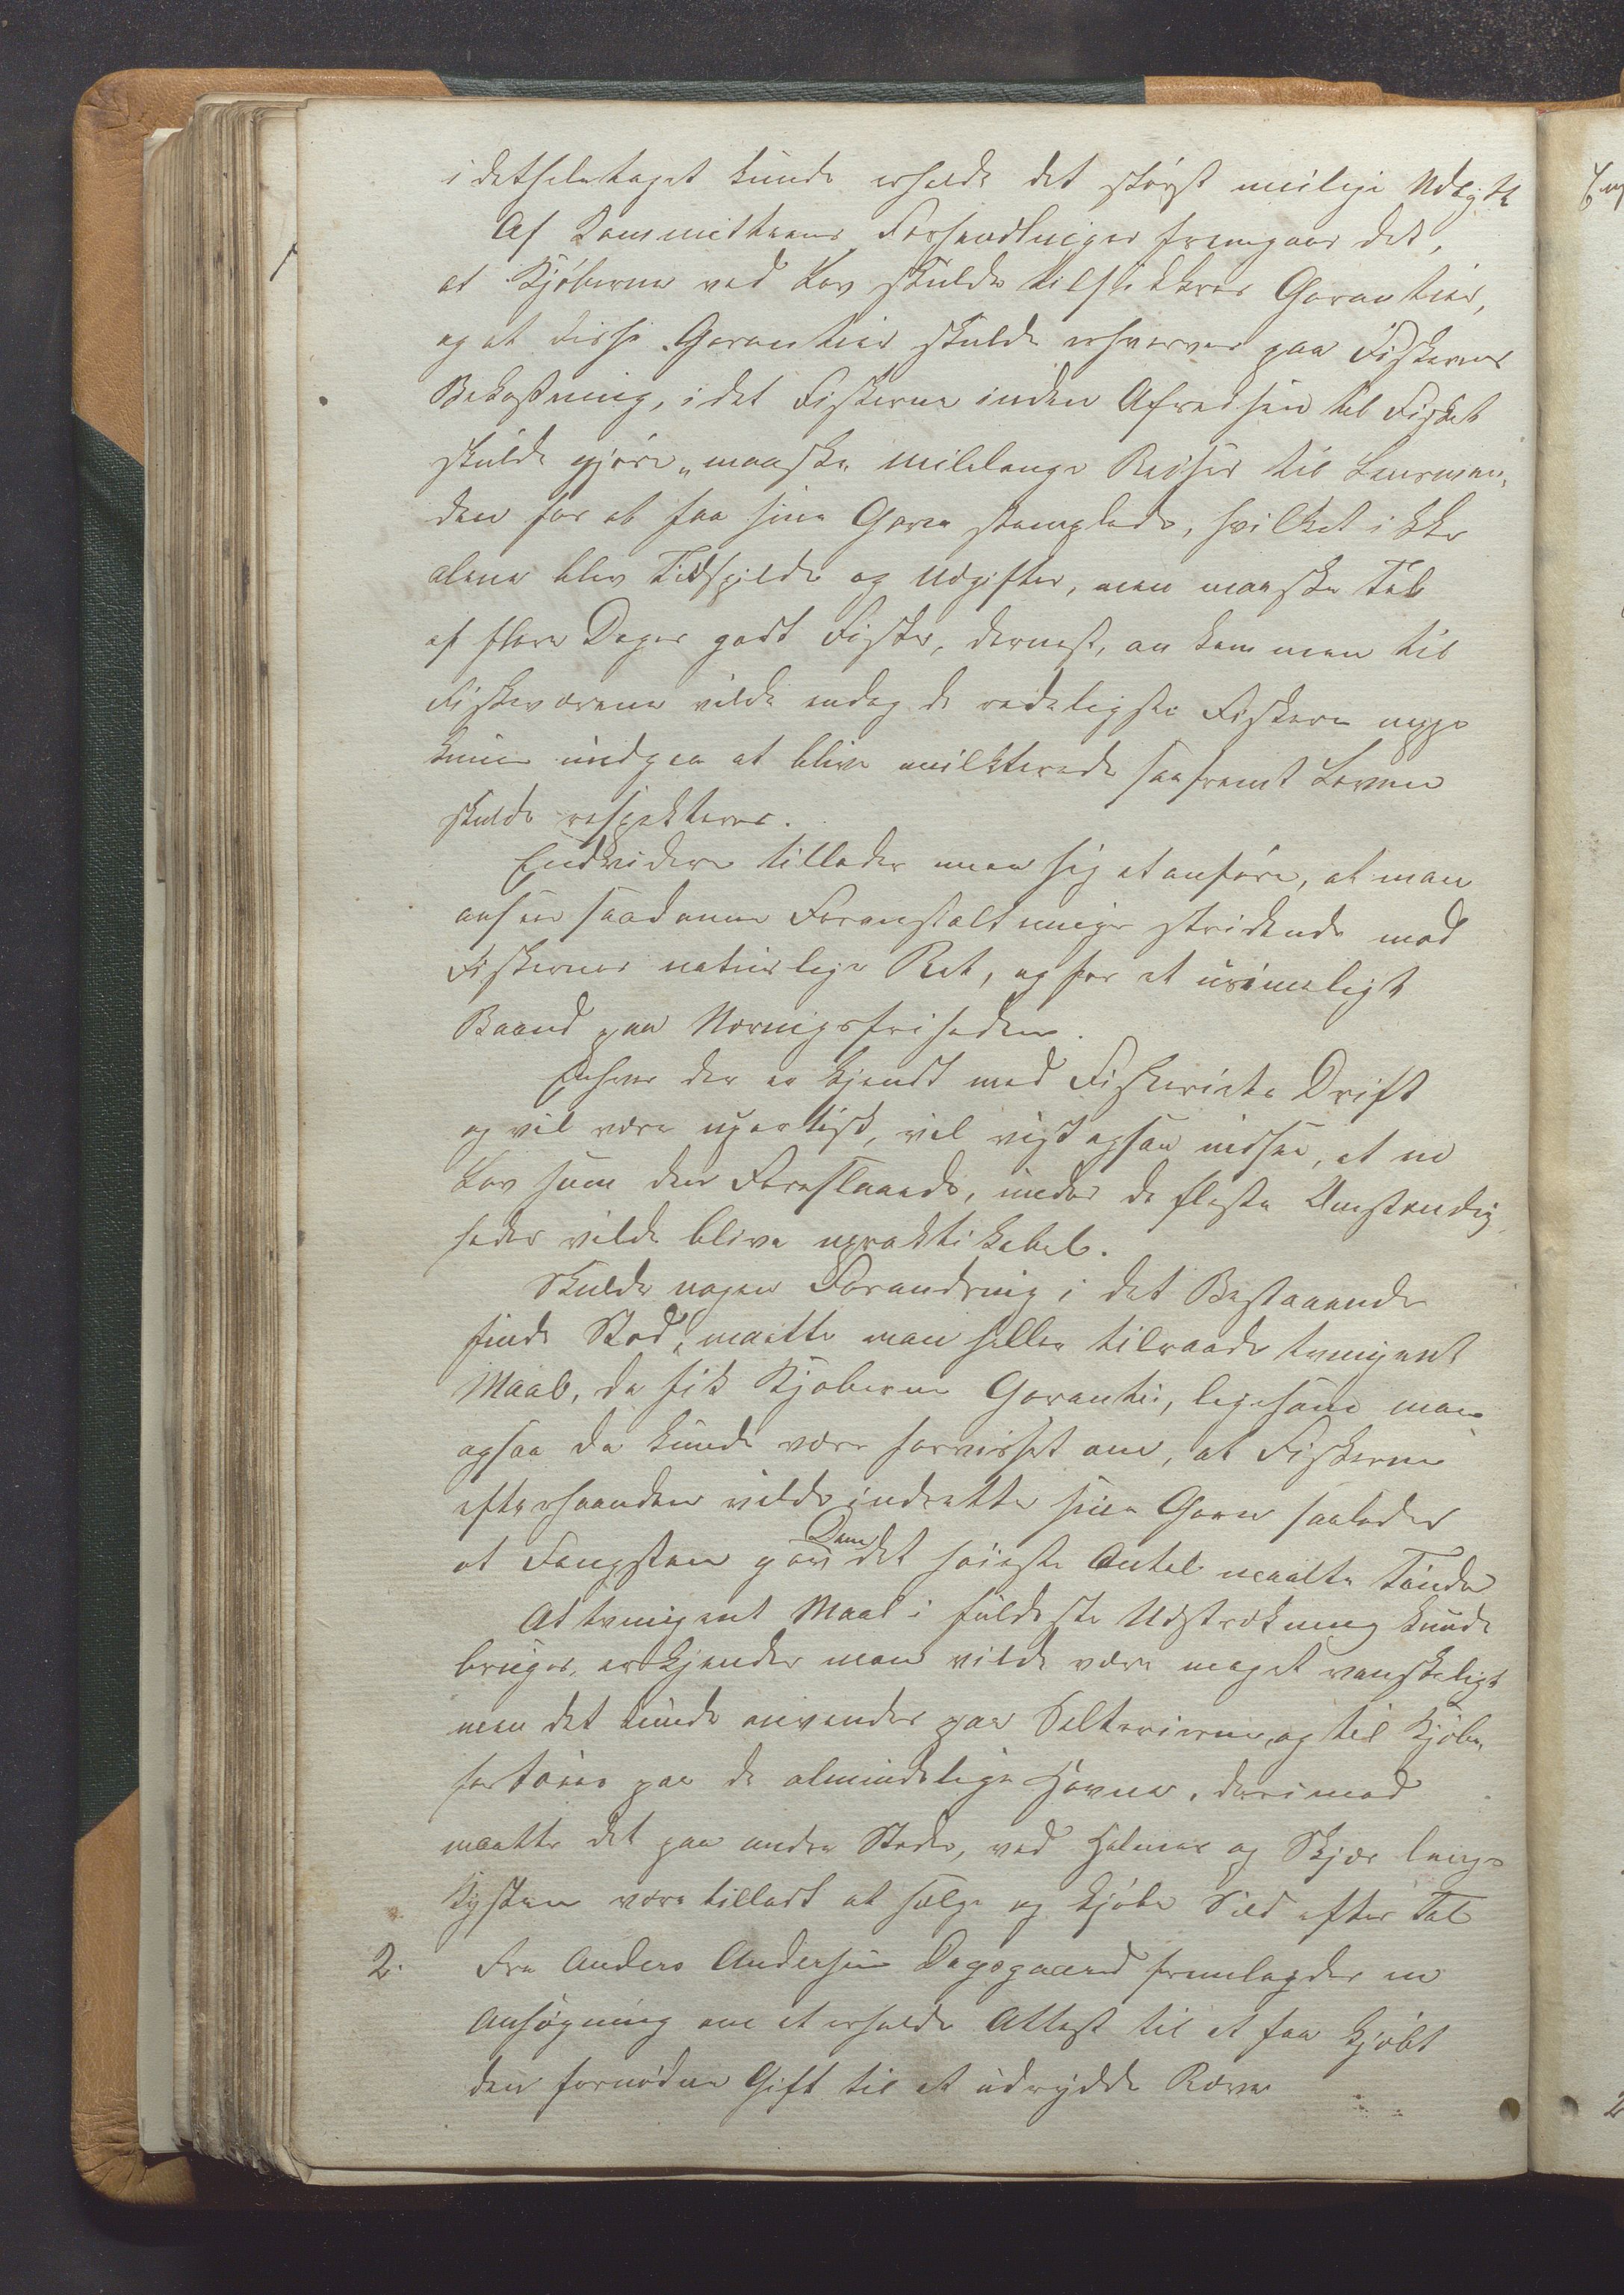 i detheletaget kunde erholde det störst mulige Udbytte
Af Kommitteens Forhandlinger fremgaar det,
at Kjöberne ved Lov skulde tilsikkres Garantier,
og at disse Garantier skulde erhverves paa Fiskernes
Bekostning, idet Fiskerne inden Afreisen til Fisket
skulde gjöre „maaske milelange Reiser til Lensman„
den for at faa sine Garn stemplede, hvilket ikke
alene blev Tidsspilde og Udgifter, men maaske Tab
af flere Dages godt Fiske, dernæst, an kommen til
Fiskeværene vilde endog de redeligste Fiskere neppe
kunne undgaa at blive mulkterede saafremt Loven
skulde respekteres.
Endvidere tillader man sig at anföre, at man
anser saadanne Foranstaltninger stridende mod
Fiskernes naturlige Ret, og for et urimeligt
Baand paa Næringsfriheden.
Enhver der er kjendt med Fiskeriets Drift
og vil være upartisk, vil vist ogsaa indsee, at en
Lov som den Foreslaaede, under de fleste Omstændig„
heder vilde blive upraktikabel.
Skulde nogen Forandring i det Bestaaende
finde Sted, maatte man heller tilraade tvungent
Maal, da fik Kjöberne Garanti, ligesom man
ogsaa da kunde være forvisset om, at Fiskerne
efterhaanden vilde indrette sine Garn saaledes
at Fangsten gav Dem det höieste Antal maalte Tönder
At tvungent Maal i fuldeste Udstrækning kunde
bruges, erkjender man vilde være meget vanskeligt
men det kunde anvendes paa Salterierne, og til Kjöbe„
fartöier paa de almindelige Havne, derimod
maatte det paa andre Steder, ved Holmer og Skjær langs
Kysten være tilladt at sælge og kjöbe Sild efter Tal
2. Fra Anders Andersen Dagsgaard fremlagdes en
Ansögning om at erholde Attest til at faa kjöbt
den fornödne Gift til at udrydde Ræve